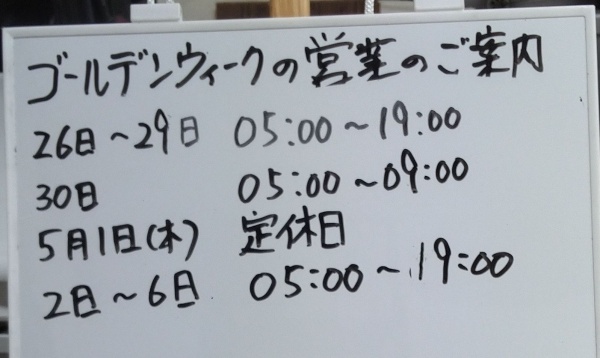 ゴールデンウィークの営業のご案内
26日～29日 05:00～19:00
30日 05:00～09:00
5月1日(木) 定休日
2日～6日 05:00～19:00